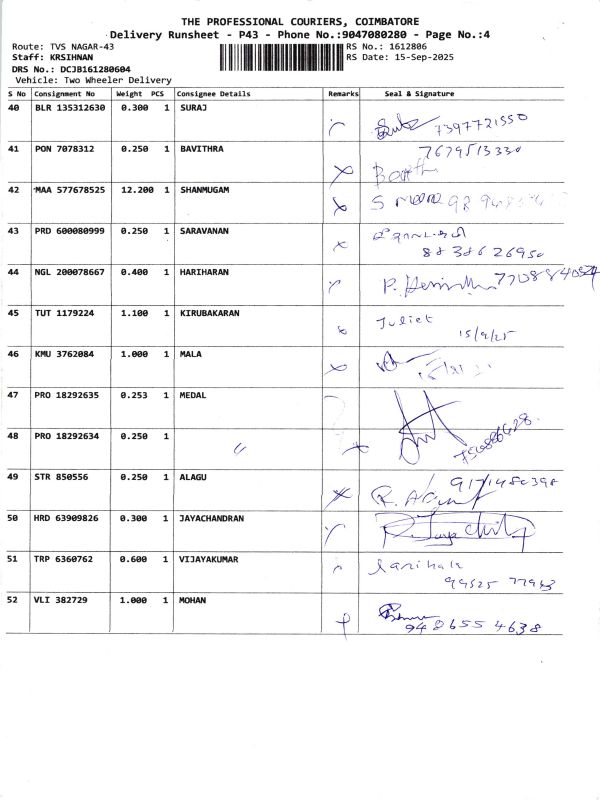 THE PROFESSIONAL COURIERS, COIMBATORE
Delivery Runsheet - P43 - Phone No.:9047080280 - Page No.:4
Route: TVS NAGAR-43 RS No.: 1612806
Staff: KRSIHNAN RS Date: 15-Sep-2025
DRS No.: DCJB161280604
Vehicle: Two Wheeler Delivery
S No Consignment No Weight PCS Consignee Details Remarks Seal & Signature
40 BLR 135312630 0.300 1 SURAJ
7397721550
41 PON 7078312 0.250 1 BAVITHRA 7679513330
42 MAA 577678525 12.200 1 SHANMUGAM
43 PRD 600080999 0.250 1 SARAVANAN
8838626950
44 NGL 200078667 0.400 1 HARIHARAN
45 TUT 1179224 1.100 1 KIRUBAKARAN Juliet
15/9/25
46 KMU 3762084 1.000 1 MALA
47 PRO 18292635 0.253 1 MEDAL
48 PRO 18292634 0.250 1 〃
49 STR 850556 0.250 1 ALAGU
50 HRD 63909826 0.300 1 JAYACHANDRAN
51 TRP 6360762 0.600 1 VIJAYAKUMAR
99525 77943
52 VLI 382729 1.000 1 MOHAN
948655 4638